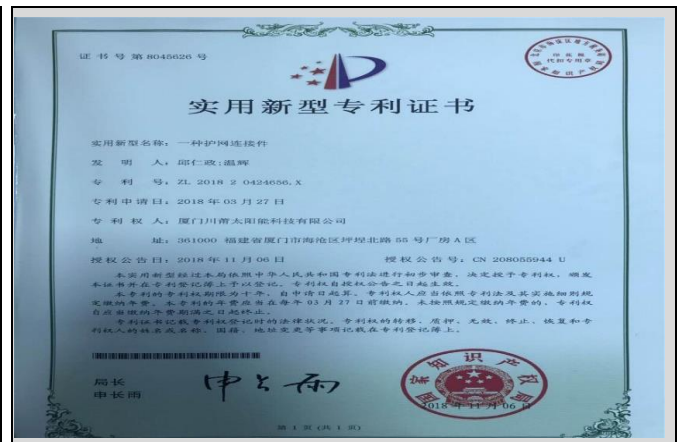 证书号第8045626号
印花税
代扣专用章
实用新型专利证书
实用新型名称：一种护网连接件
发明人：邱仁政;温辉
专利号：ZL 2018 2 0424656.X
专利申请日：2018年03月27日
专利权人：厦门川莆太阳能科技有限公司
地址：361000 福建省厦门市海沧区坪埕北路55号厂房A区
授权公告日：2018年11月06日 授权公告号：CN 208055944 U
本实用新型经过本局依照中华人民共和国专利法进行初步审查，决定授予专利权，颁发
本证书并在专利登记簿上予以登记。专利权自授权公告之日起生效。
本专利的专利权期限为十年，自申请日起算。专利权人应当依照专利法及其实施细则规
定缴纳年费。本专利的年费应当在每年03月27日前缴纳。未按照规定缴纳年费的，专利权
自应当缴纳年费期满之日起终止。
专利证书记载专利权登记时的法律状况。专利权的转移、质押、无效、终止、恢复和专
利权人的姓名或名称、国籍、地址变更等事项记载在专利登记簿上。
局长
申长雨
申长雨
国家知识产权局
2018年11月06日
第1页(共1页)